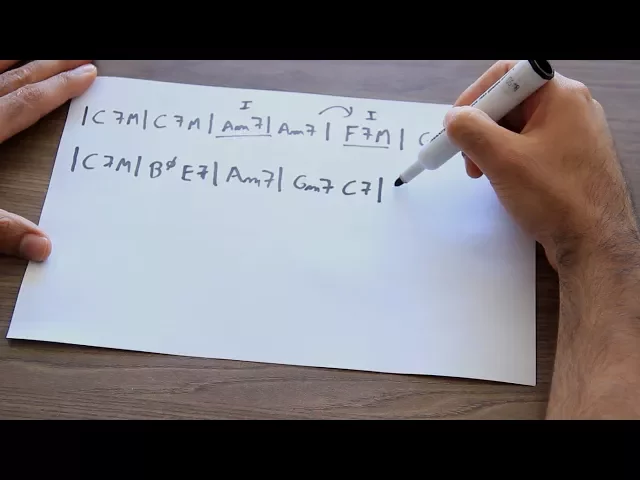 I I
| C 7M | C 7M | Am7 | Am7 | F 7M | C
| C 7M | Bø E7 | Am7 | Gm7 C7 |